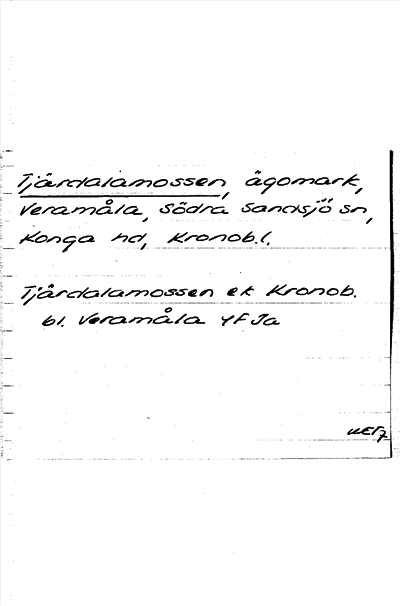 Tjärdalamossen, ägomark,
Veramåla, Södra Sandsjö sn,
Konga hd, Kronob.l.
Tjärdalamossen ek Kronob.
bl. Veramåla 4F Ja